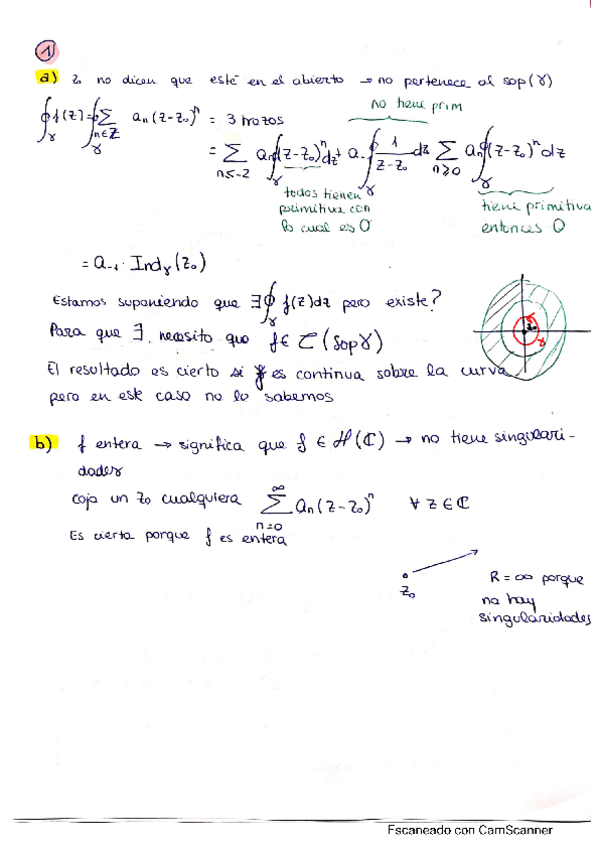 1
a) z₀ no dicen que esté en el abierto → no pertenece al sop(γ)
no tiene prim
∮_γ f(z) = ∮_γ ∑_{n∈ℤ} aₙ(z-z₀)ⁿ = 3 trozos
= ∑_{n≤-2} aₙ∮_γ(z-z₀)ⁿdz + a₋₁∮_γ 1/(z-z₀) dz ∑_{n≥0} aₙ∮_γ(z-z₀)ⁿdz
todos tienen primitiva con lo cual es 0
tiene primitiva entonces 0
= a₋₁ · Ind_γ(z₀)
Estamos suponiendo que ∃∮_γ f(z)dz pero existe?
Para que ∃, necesito que f ∈ C(Sop γ)
El resultado es cierto si f es continua sobre la curva,
pero en este caso no lo sabemos
b) f entera → significa que f ∈ H(ℂ) → no tiene singulari-
dades
cojo un z₀ cualquiera ∑_{n=0}^{∞} aₙ(z-z₀)ⁿ ∀ z ∈ ℂ
Es cierta porque f es entera
z₀
R = ∞ porque
no hay
singularidades
Escaneado con CamScanner